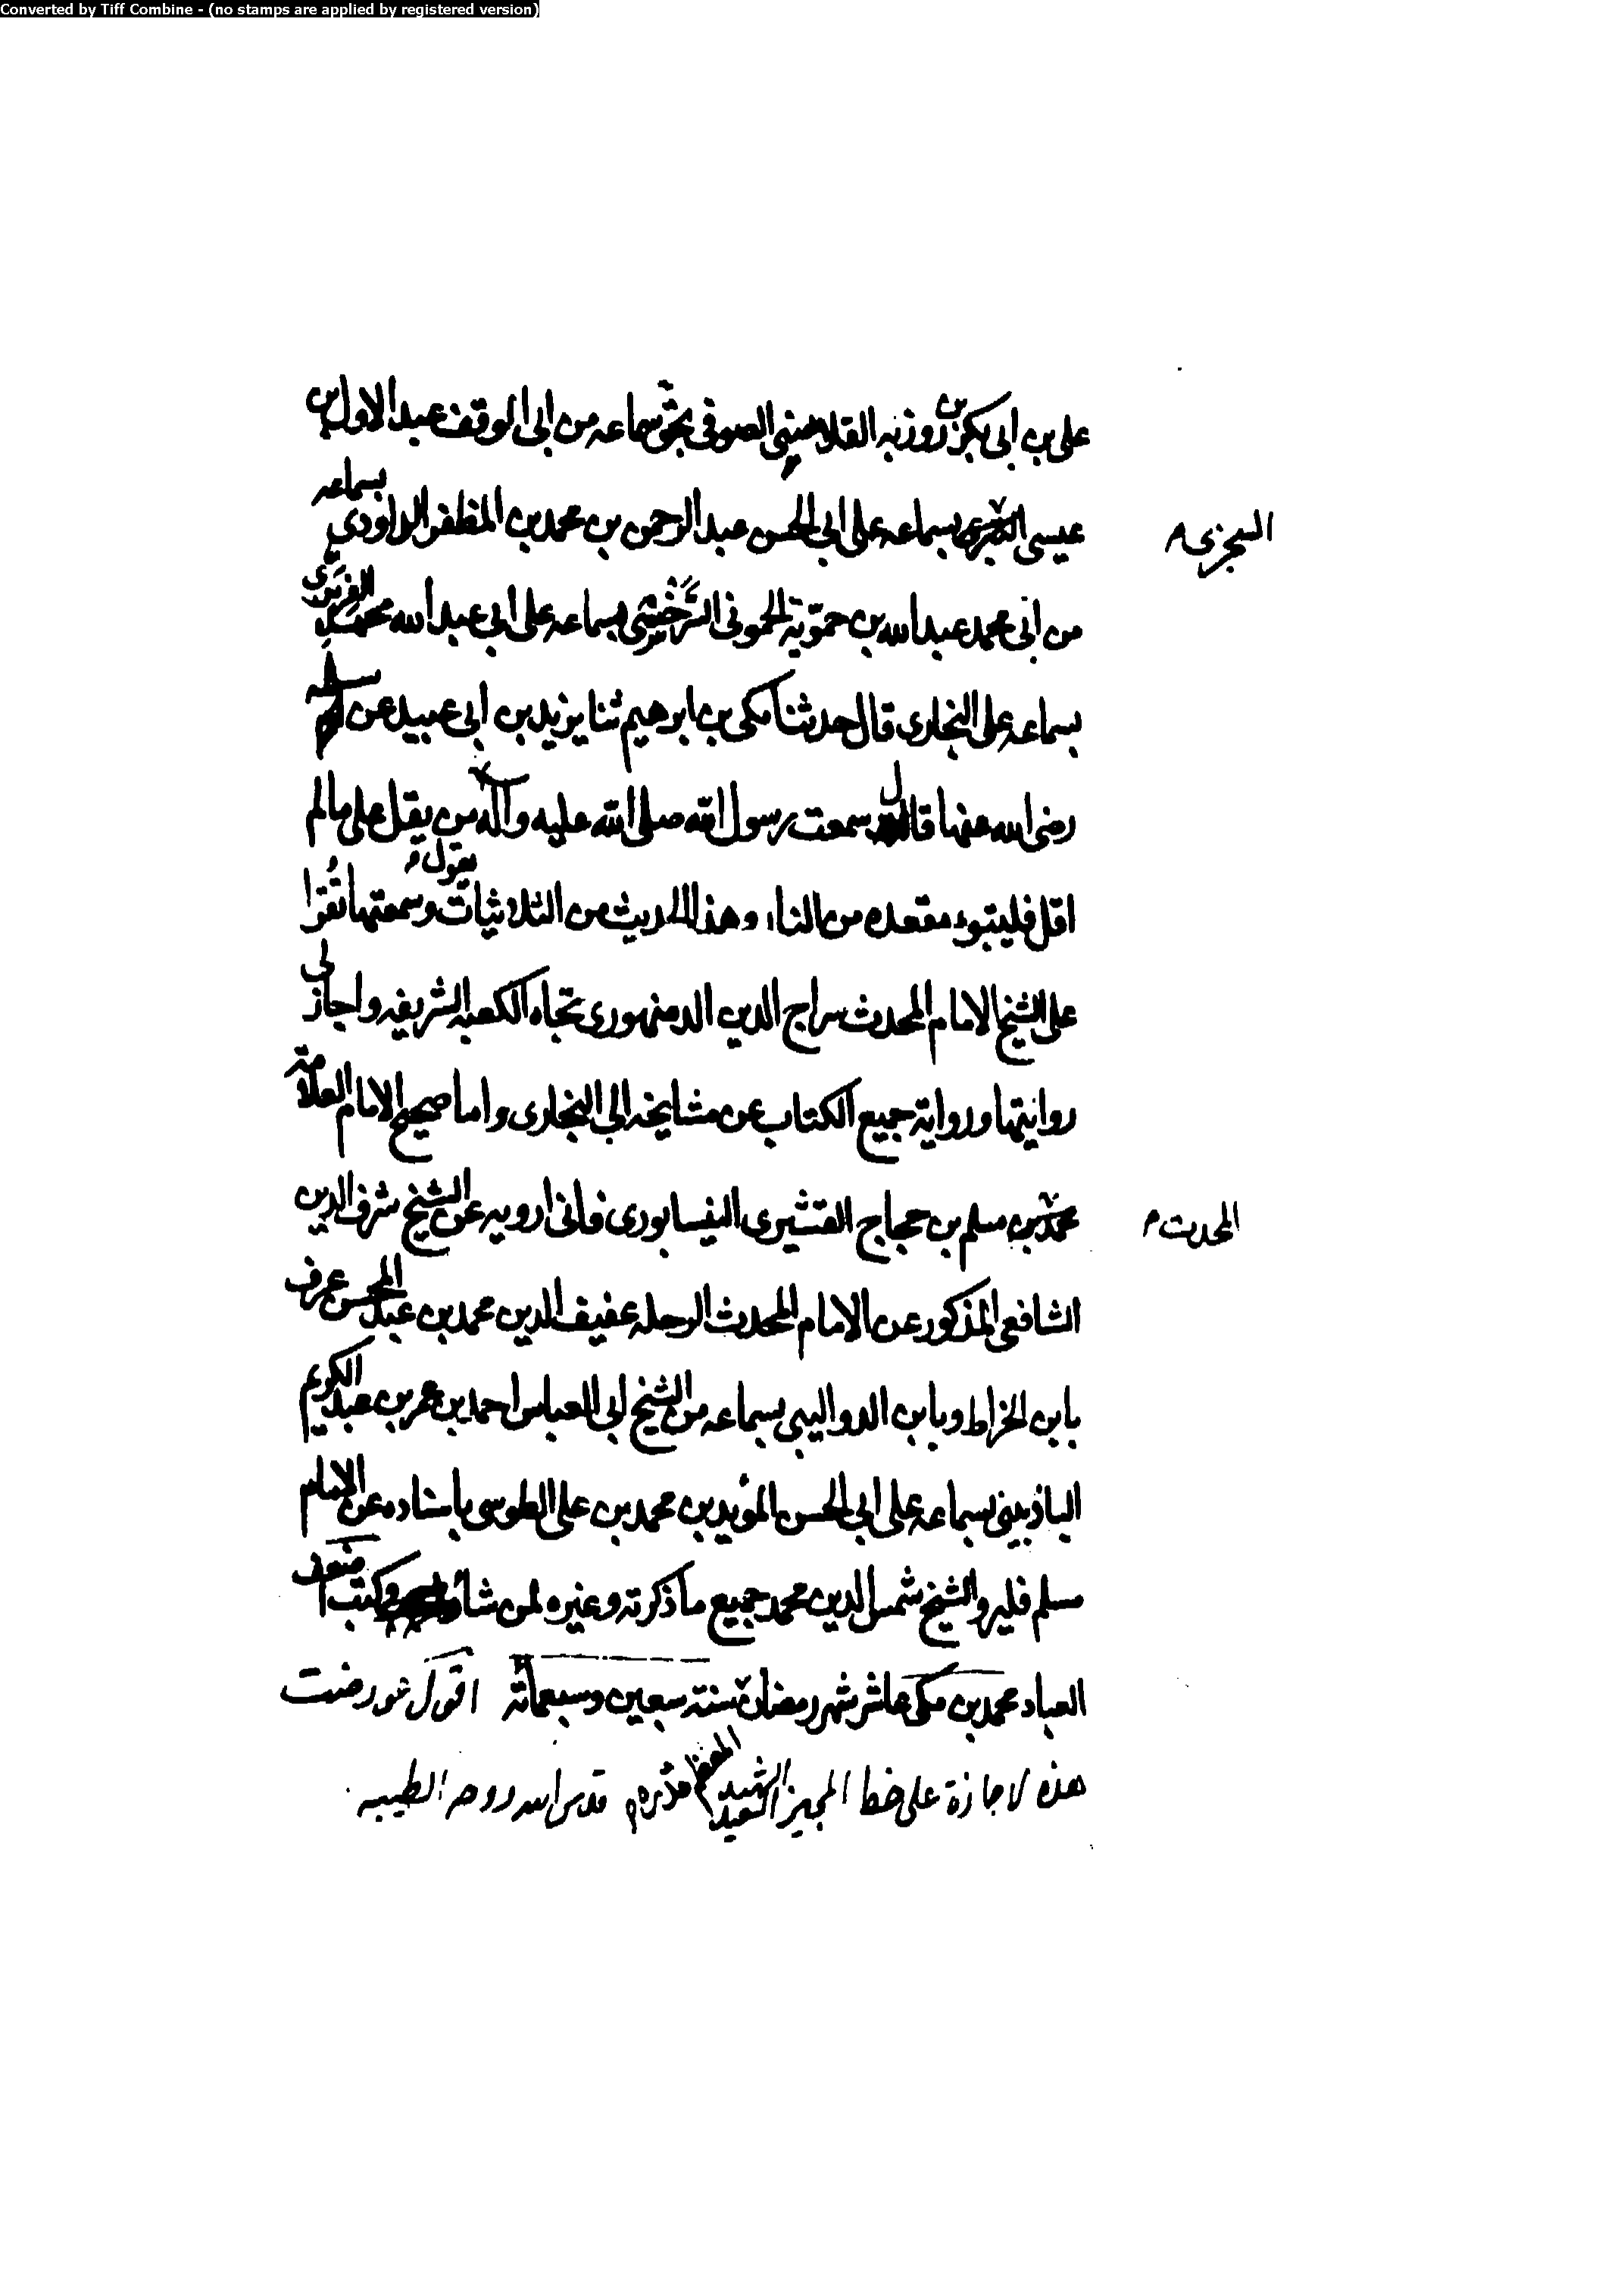 Converted by Tiff Combine - (no stamps are applied by registered version)
على بن ابى بكر بن روزبه القلانسى الصوفى بحق سماعه من ابى الوقف عبد الاول بن
عيسى بسماعه على ابى الحسن عبد الرحمن بن محمد بن المظفر الداودى بسماعه
السجزى م
من ابى محمد عبد الله بن حمّوية الحموئى السَّرَخْسِى بسماعه على ابى عبد الله محمد الفربرى
بسماعه على البخارى قال حدثنا مكى بن ابرهيم ثنا يزيد بن ابى عبيد عن سلمه
رضى الله عنها قال سمعت رسول الله صلى الله عليه وآله من يقل على مالم
يقول م
اقل فليتبوء مقعده من النار وهذا الحديث من الثلاثيات وسمعتها تُقرا
على الشيخ الامام المحدث سراج الدين الدمنهورى تجاه الكعبه الشريفه واجاز لى
روايتها ورواية جميع الكتاب عن مشايخه الى البخارى واما صحيح الامام العلامة
محمد بن مسلم بن حجاج القشيرى النيسابورى فانى ارويه عن الشيخ شرف الدين
المحدث م
الشافعى المذكور عن الامام المحدث الرحله عفيف الدين محمد بن عبد المحسن عرف
بابن الخراط وبابن الدواليبى بسماعه من الشيخ ابى العباس احمد بن عمر بن عبد الكريم
الباذبينى بسماعه على ابى الحسن المؤيد بن محمد بن على الطوسى باسناده عن الامام
مسلم فليرو الشيخ شمس الدين محمد جميع ما ذكرته وغيره لمن شاء وكتب اضعف
العباد محمد بن مكى عاشر شهر رمضان سنة سبعين وسبعمائة اقول عورضت
هذه الاجازة على خط المجيز الشهيد السعيد قدس الله روحه الطيبه